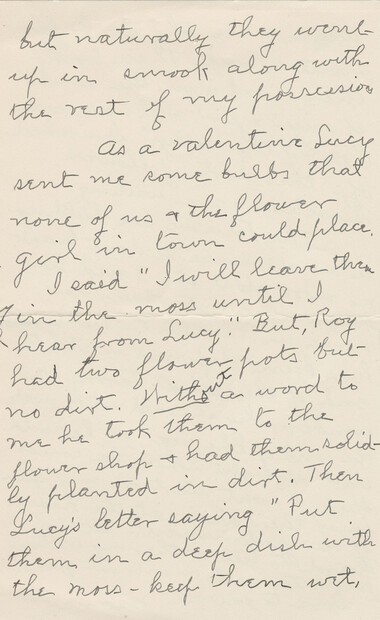 but naturally they went
up in smook along with
the rest of my possession
As a valentine Lucy
sent me some bulbs that
none of us & the flower
girl in town could place.
I said "I will leave them
in the moss until I
hear from Lucy." But, Roy
had two flower pots but
no dirt. Without a word to
me he took them to the
flower shop & had them solid-
ly planted in dirt. Then
Lucy's letter saying "Put
them in a deep dish with
the moss - keep them wet,